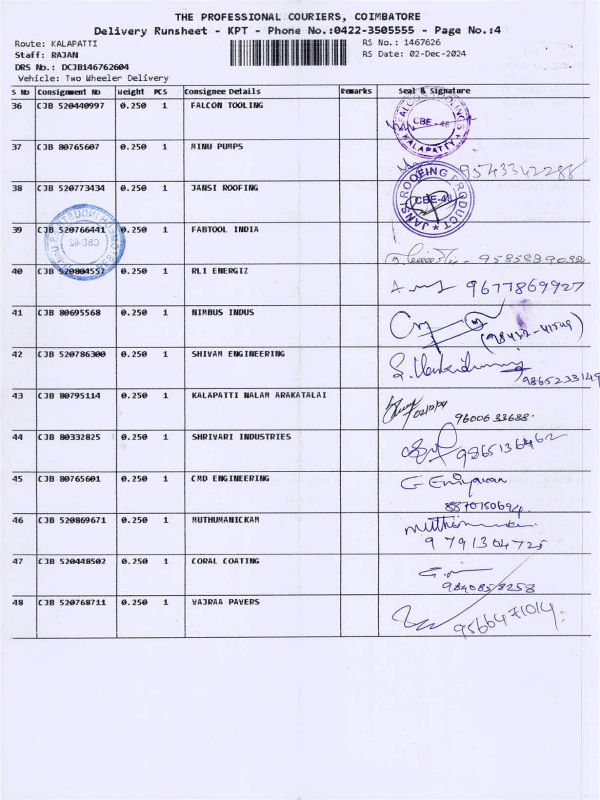 THE PROFESSIONAL COURIERS, COIMBATORE
Delivery Runsheet - KPT - Phone No.:0422-3505555 - Page No.:4
Route: KALAPATTI RS No.: 1467626
Staff: RAJAN RS Date: 02-Dec-2024
DRS No.: DCJB146762604
Vehicle: Two Wheeler Delivery
S No Consignment No Weight PCS Consignee Details Remarks Seal & Signature
36 CJB 520440997 0.250 1 FALCON TOOLING
FALCON TOOLINGS CBE-48 KALAPATTY
37 CJB 80765607 0.250 1 MINU PUMPS
9543342288
38 CJB 520773434 0.250 1 JANSI ROOFING
ROOFING PRODUCT CBE-48
39 CJB 520766441 0.250 1 FABTOOL INDIA
9585839032
40 CJB 520804557 0.250 1 RLI ENERGIZ
9677869927
41 CJB 80695568 0.250 1 NIMBUS INDUS
42 CJB 520786300 0.250 1 SHIVAM ENGINEERING
9865233149
43 CJB 80795114 0.250 1 KALAPATTI NALAM ARAKATALAI
9600633688.
44 CJB 80332825 0.250 1 SHRIVARI INDUSTRIES
9865136462
45 CJB 80765601 0.250 1 CMD ENGINEERING
8870150694
46 CJB 520869671 0.250 1 MUTHUMANICKAM
9791304725
47 CJB 520448502 0.250 1 CORAL COATING
9840858258
48 CJB 520768711 0.250 1 VAJRAA PAVERS
9566471014